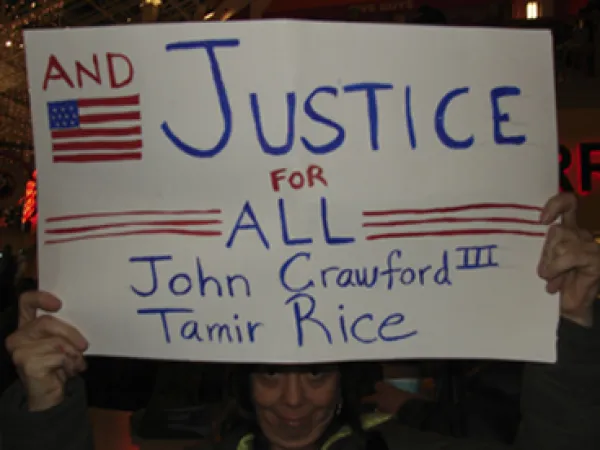 AND
JUSTICE
FOR
ALL
John Crawford III
Tamir Rice